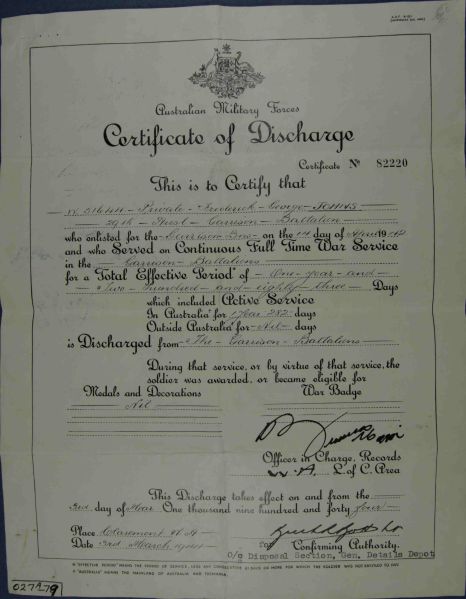 Australian Military Forces
Certificate of Discharge
Certificate No 82220
This is to Certify that
Private - Frederick - George - JOHNS
Garrison - Battalion
who enlisted for the Garrison Bns on the 14 day of
and who Served on Continuous Full Time War Service
in the Garrison - Battalions
for a Total Effective Period* of - One - year - and -
- Two - hundred - and - eighty - three - Days
which included Active Service
In Australia† for 1 Year 282 days
Outside Australia† for - Nil - days
is Discharged from - The - Garrison - Battalions -
During that service, or by virtue of that service, the
soldier was awarded, or became eligible for
Medals and Decorations War Badge
Nil
Officer in Charge, Records
W.A. L. of C. Area
This Discharge takes effect on and from the
3rd day of Mar One thousand nine hundred and forty four -
Place Claremont W.A.
Date 3rd March 1944 for Confirming Authority.
O/C Disposal Section, Gen. Details Depot
* "EFFECTIVE PERIOD" MEANS THE PERIOD OF SERVICE, LESS ANY CONSECUTIVE 21 DAYS OR MORE FOR WHICH THE SOLDIER WAS NOT ENTITLED TO PAY
† "AUSTRALIA" MEANS THE MAINLAND OF AUSTRALIA AND TASMANIA.